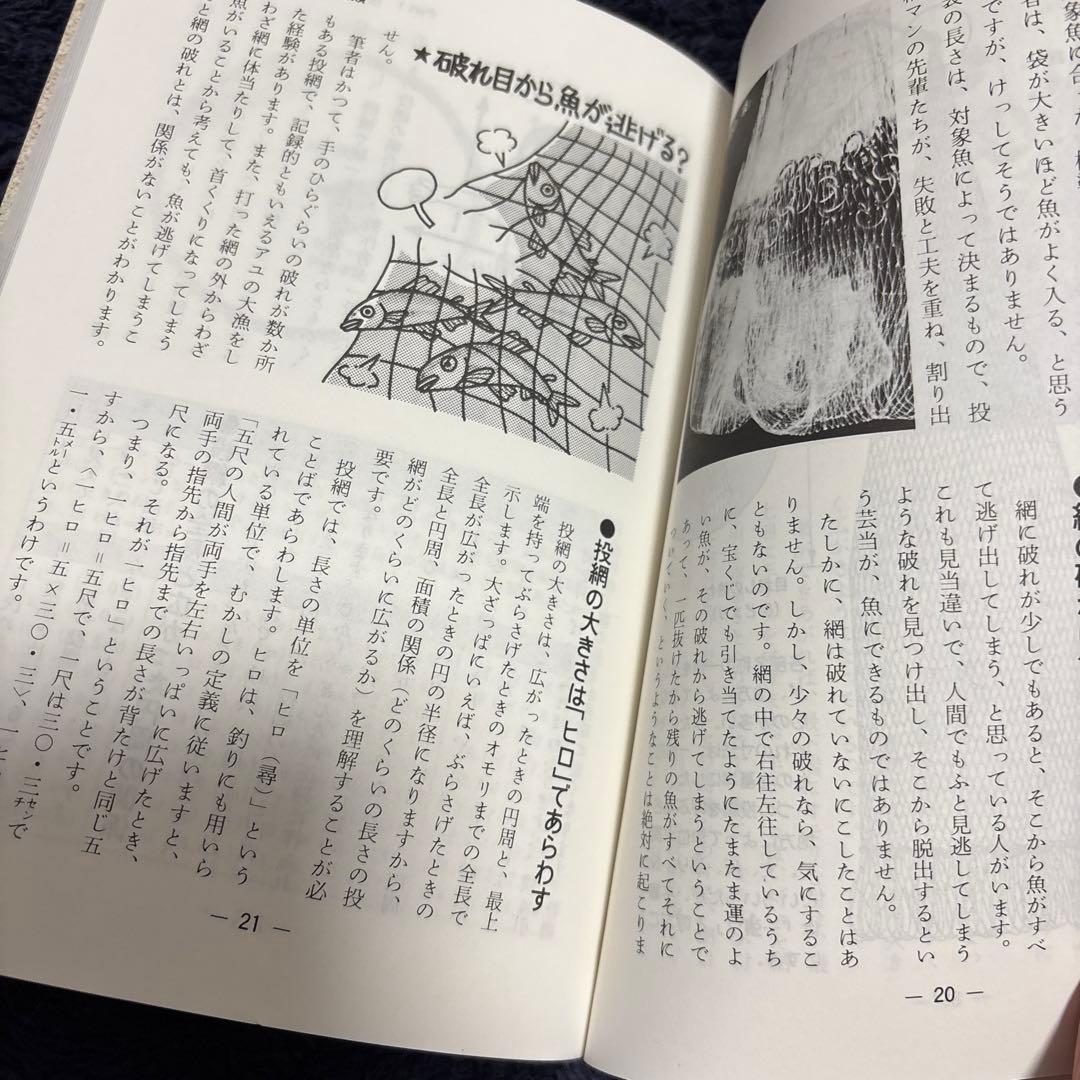 者は、袋が大きいほど魚がよく入る、と思う
ですが、けっしてそうではありません。
袋の長さは、対象魚によって決まるもので、投
網マンの先輩たちが、失敗と工夫を重ね、割り出
網に破れが少しでもあると、そこから魚がすべ
て逃げ出してしまう、と思っている人がいます。
これも見当違いで、人間でもふと見逃してしまう
ような破れを見つけ出し、そこから脱出するとい
う芸当が、魚にできるものではありません。
たしかに、網は破れていないにこしたことはあ
りません。しかし、少々の破れなら、気にするこ
ともないのです。網の中で右往左往しているうち
に、宝くじでも引き当てたようにたまたま運のよ
い魚が、その破れから逃げてしまうということで
あって、一匹抜けたから残りの魚がすべてそれに
ついていく、というようなことは絶対に起こりま
— 20 —
★破れ目から、魚が逃げる?
せん。
筆者はかつて、手のひらぐらいの破れが数か所
もある投網で、記録的ともいえるアユの大漁をし
た経験があります。また、打った網の外からわざ
わざ網に体当たりして、首くくりになってしまう
魚がいることから考えても、魚が逃げてしまうこ
と網の破れとは、関係がないことがわかります。
●投網の大きさは「ヒロ」であらわす
投網の大きさは、広がったときの円周と、最上
端を持ってぶらさげたときのオモリまでの全長で
示します。大ざっぱにいえば、ぶらさげたときの
全長が広がったときの円の半径になりますから、
全長と円周、面積の関係(どのくらいの長さの投
網がどのくらいに広がるか)を理解することが必
要です。
投網では、長さの単位を「ヒロ(尋)」という
ことばであらわします。ヒロは、釣りにも用いら
れている単位で、むかしの定義に従いますと、
「五尺の人間が両手を左右いっぱいに広げたとき、
両手の指先から指先までの長さが背たけと同じ五
尺になる。それが一ヒロ」ということです。
つまり、一ヒロ=五尺で、一尺は三〇・三センチで
すから、〈一ヒロ=五×三〇・三〉、一ヒ
一・五メートルというわけです。
— 21 —